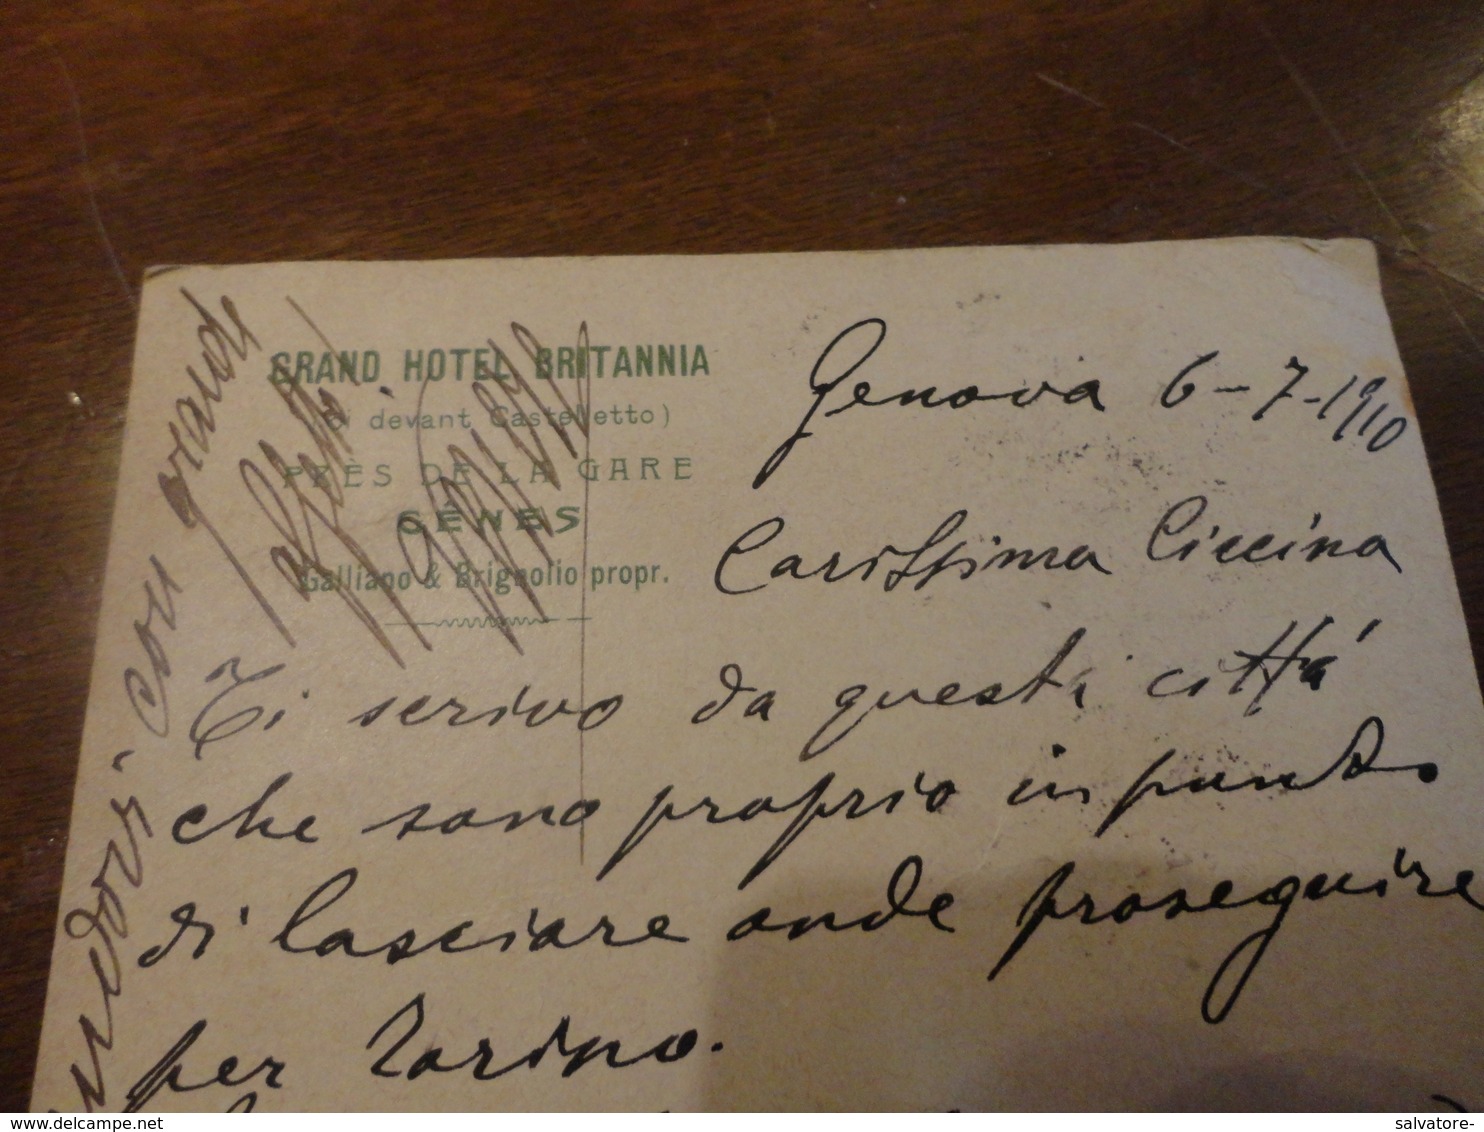 GRAND HOTEL BRITANNIA
devant Castelletto)
PRÈS DE LA GARE
GÊNES
Galliano & Brignolio propr.
Genova 6-7-1910
Carissima Ciccina
Ti scrivo da questa cittá
che sono proprio in punto
di lasciare onde proseguire
per Torino.
con grande
affetto
© www.delcampe.net
salvatore-